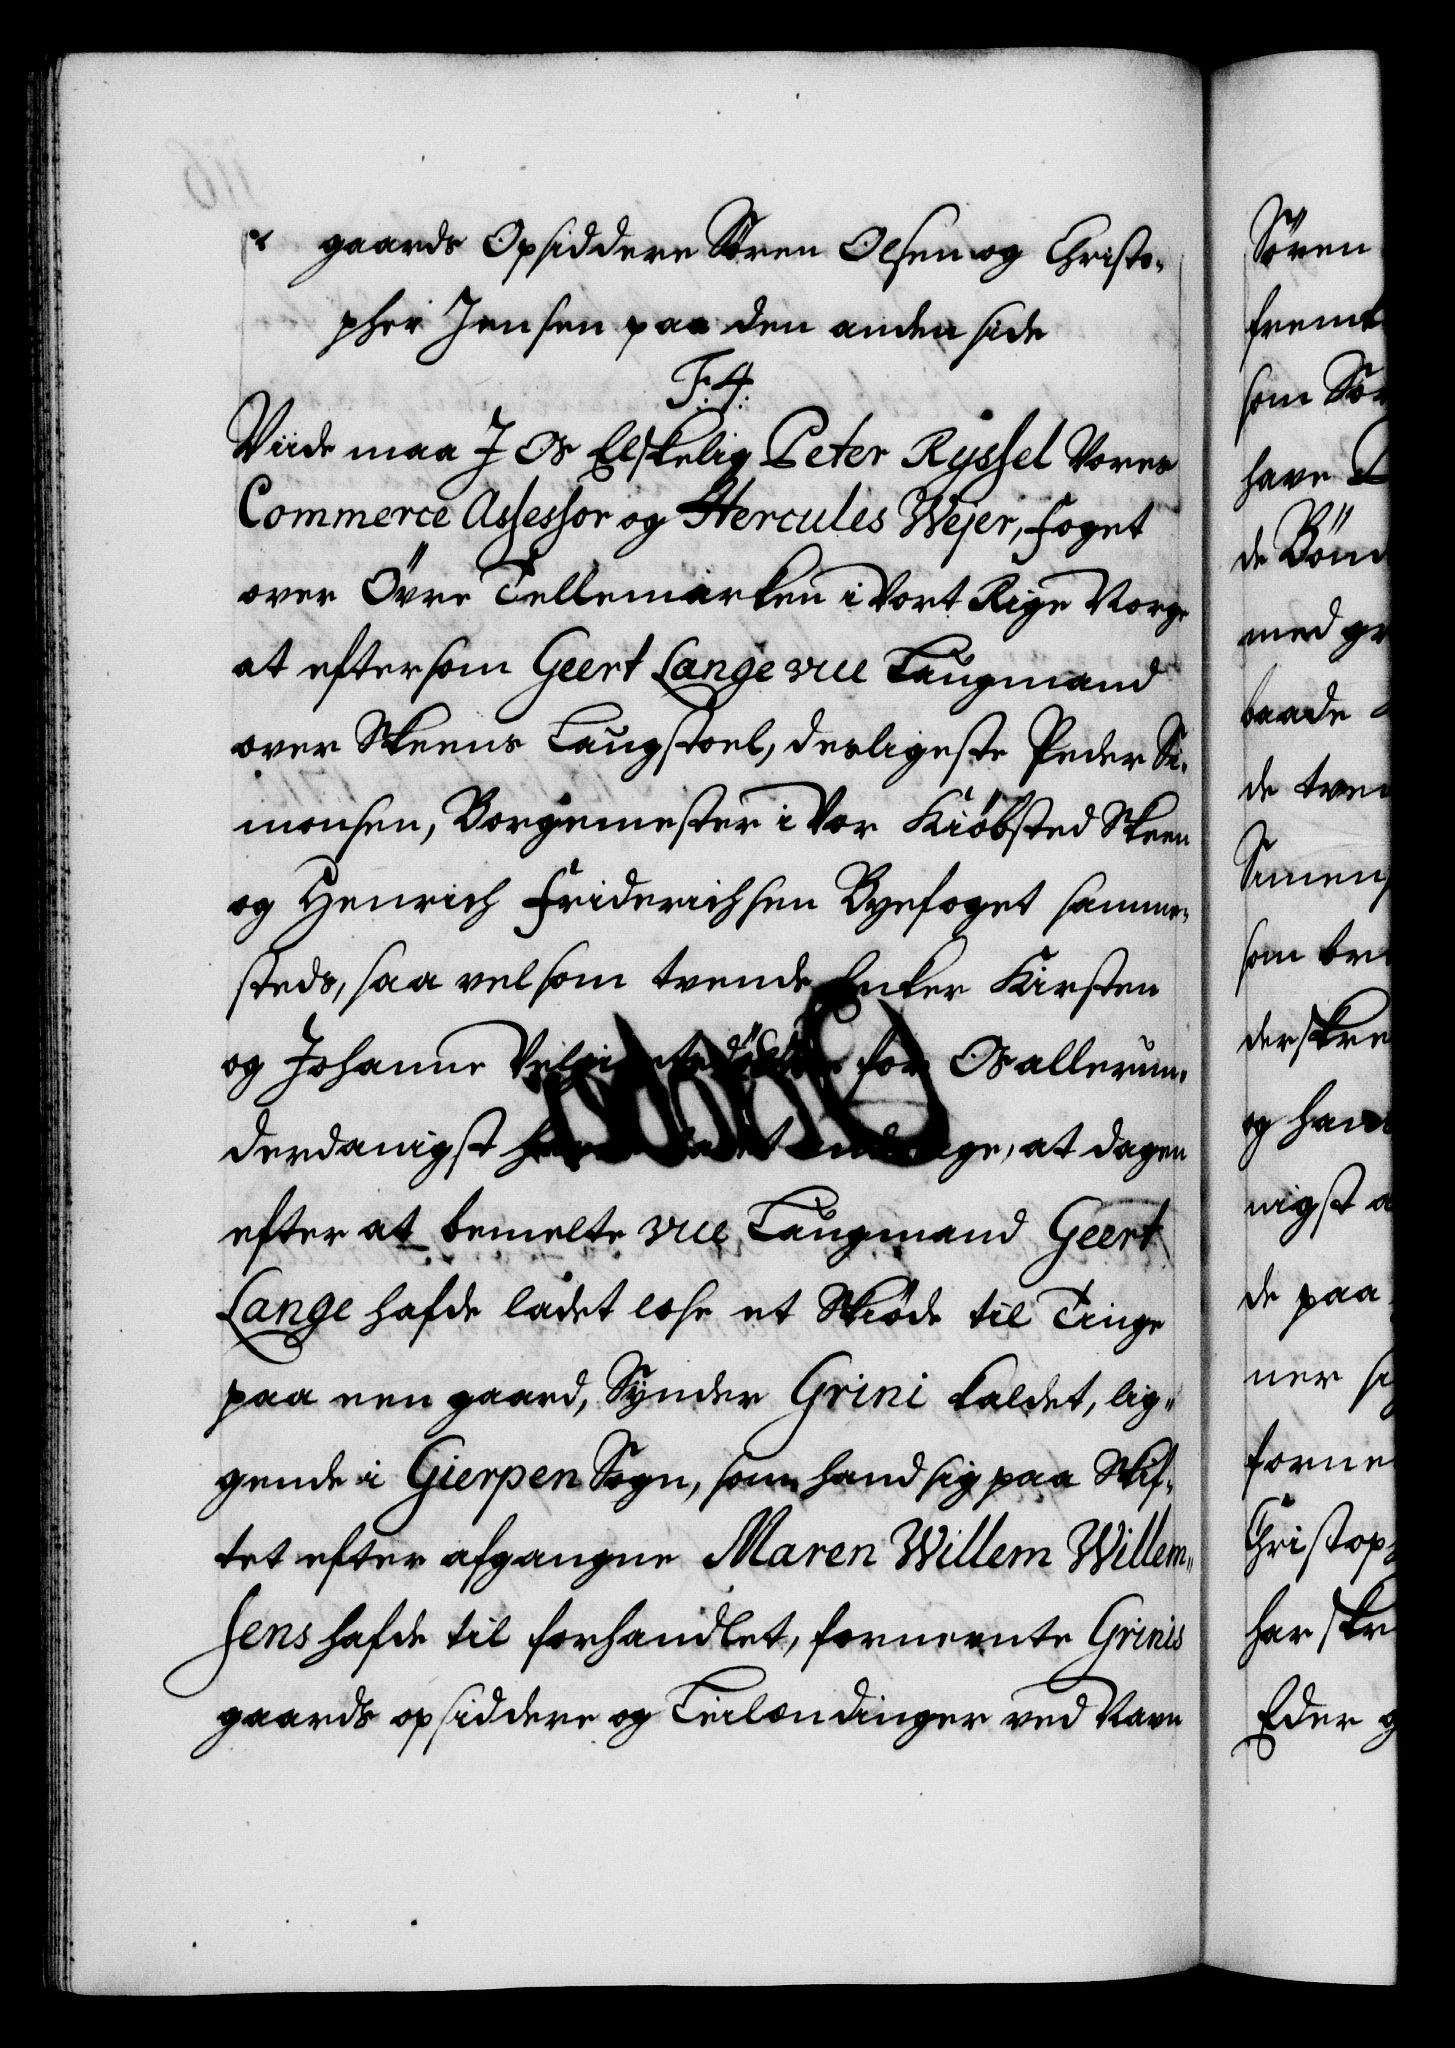 gaards Opsiddere Sören Olsen og Christo-
pher Jensen paa den anden side
F: 4:
Viide maa I Os Elskelig Peter Ryssel Vores
Commerce Assessor og Hercules Wejer, Foget
over Övre Tellemarken i Vort Rige Norge
at eftersom Geert Lange vice Laugmand
over Skeens Laugstoel, desligeste Peder Si-
monsen, Borgemester i Vor Kiöbsted Skeen
og Henrich Friderichsen Byefoget samme-
steds, saa vel som tvende Enker Kirsten
og Johanne for Os allerun-
derdanigst at dagen
efter at bemelte vice Laugmand Geert
Lange hafde ladet læse et Skiöde til Tinge
paa een gaard, Synder Grini kaldet, lig-
gende i Gierpen Sogn, som hand sig paa Skif-
tet efter afgangne Maren Willem Willem-
sens hafde til forhandlet, fornevnte Grinis
gaards opsiddere og Leilændinger ved Navn
Sören
fremt
som Sör
have
de Bönd
med gr
baade
de tven
Simens
som br
derskre
og han
nigst a
de paa
ner si
forne
Christop
har skr
Eder g